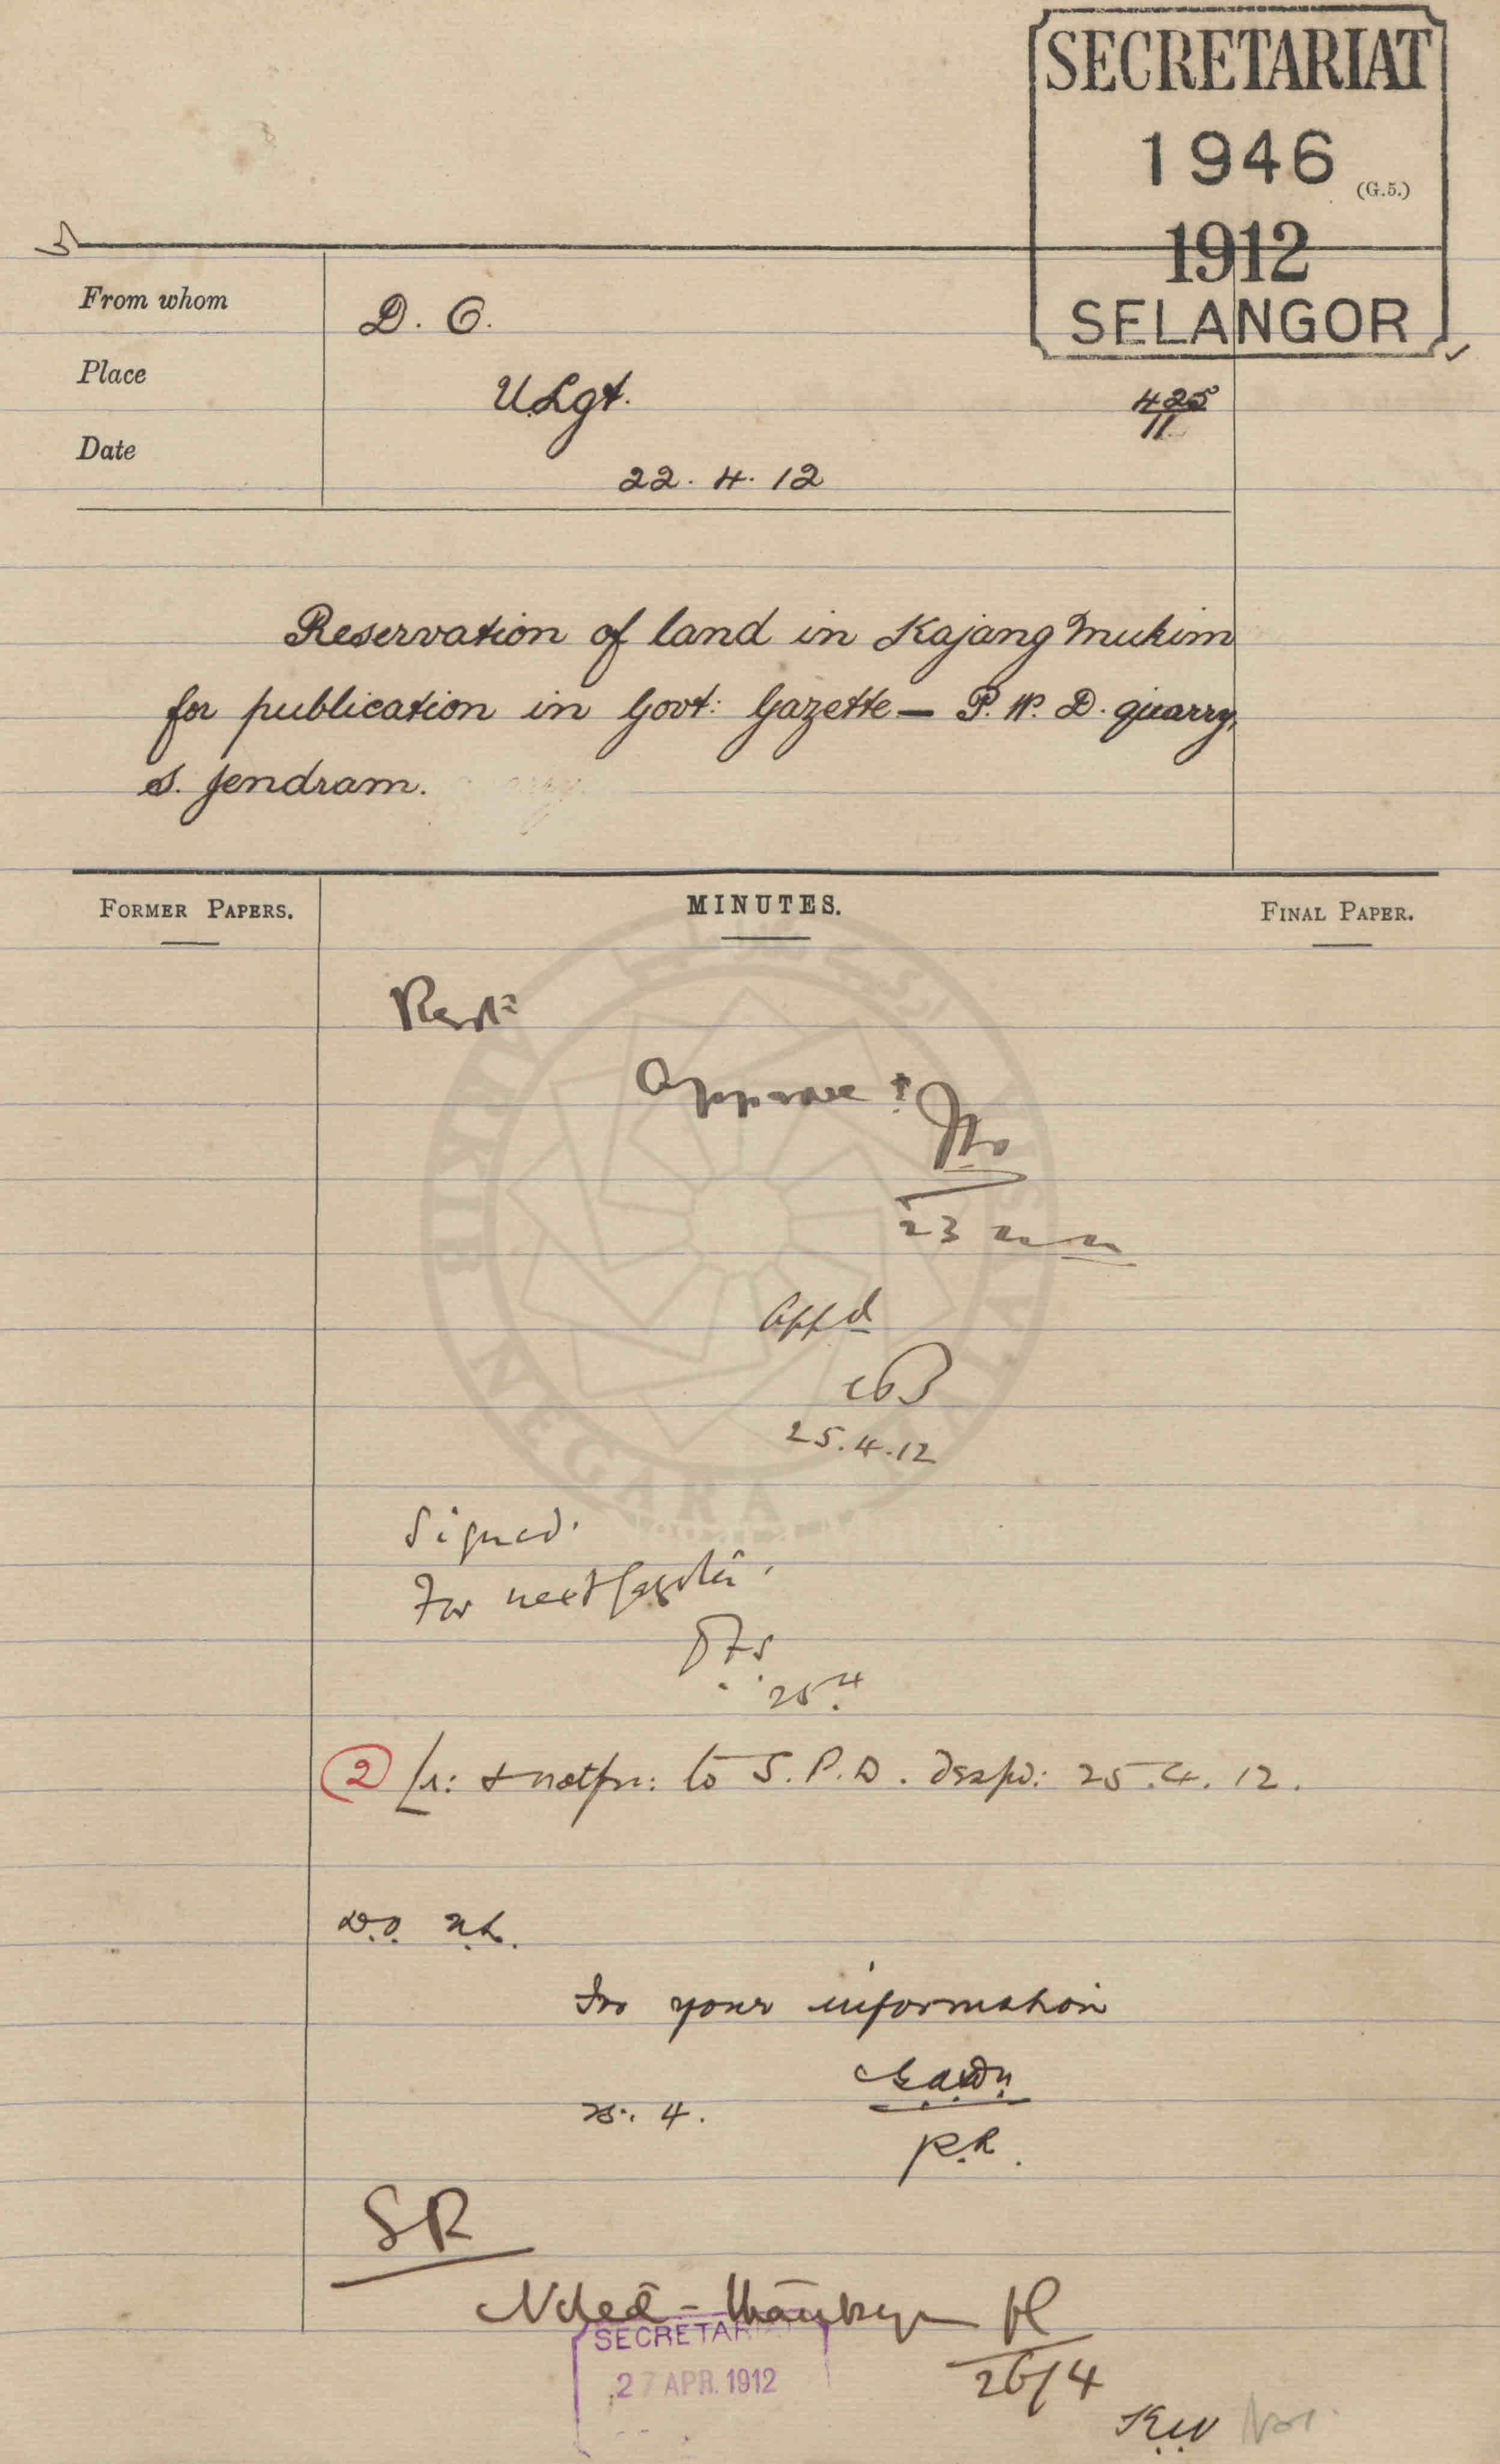 SECRETARIAT
1946
(G.5.)
1912
SELANGOR
From whom
D. O.
Place
U. Lgt.
Date
22. 4. 12
Reservation of land in Kajang Mukim
for publication in Govt: Gazette — P. W. D. quarry,
S. Jendram.
FORMER PAPERS.
MINUTES.
FINAL PAPER.
Approve?
23
Appd
25.4.12
Signed.
For next Gazette.
25.4
② Lr: & notfn: to S. P. D. despd: 25.4.12.
D.O. U.L.
For your information
25. 4.
P.R.
SR
Noted - thank you
26/4
SECRETARIAT
27 APR. 1912
ARKIB NEGARA MALAYSIA